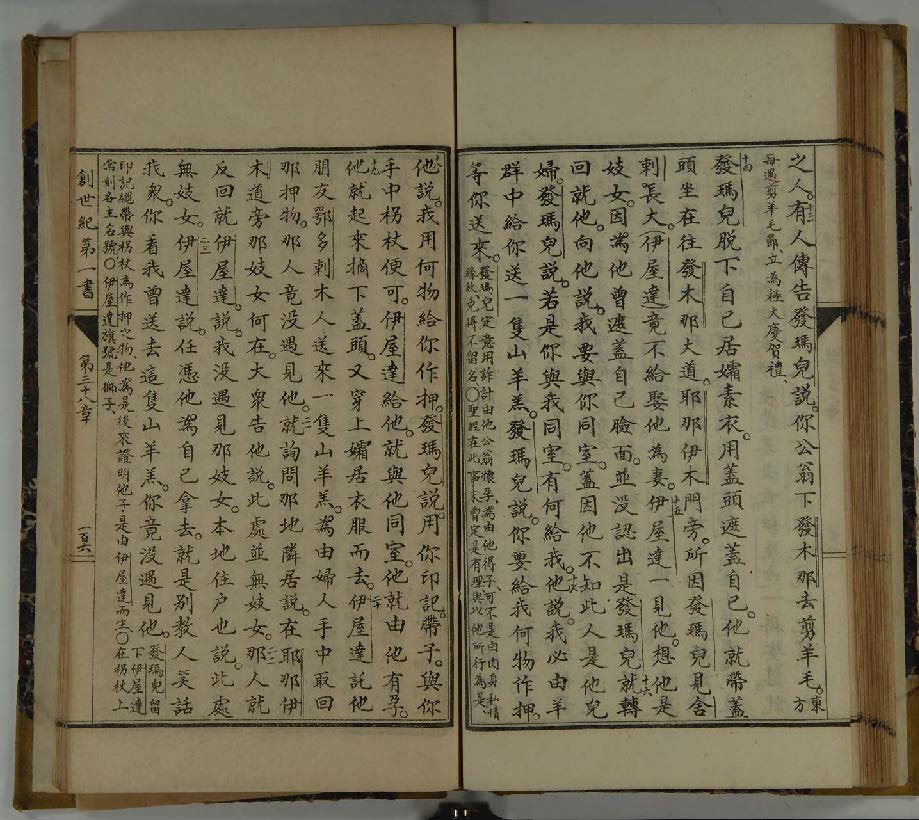 之人。十三有人傳告發瑪兒說。你公翁下發木那去剪羊毛。東方
每遇剪羊毛節立為極大慶賀禮
十四發瑪兒脫下自己居孀素衣。用蓋頭遮蓋自己。他就帶蓋
頭坐在往發木那大道。耶那伊木門旁。所因發瑪兒見舍
剌長大。伊屋達竟不給娶他為妻。十五伊屋達一見他。想他是
妓女。因為他曾遮蓋自己臉面。並没認出是發瑪兒。十六就轉
回就他。向他說。我要與你同室。蓋因他不知此人是他兒
婦。發瑪兒說。若是你與我同室。有何給我。十七他說。我必由羊
群中給你送一隻山羊羔。發瑪兒說。你要給我何物作押。
等你送來。發瑪兒定意用詐計由他公翁懷孕。為由他得子。可不是由肉身私情
緣故。免得不留名〇聖經在此事未曾定是有理與以他所行為是
十八他說。我用何物給你作押。發瑪兒說。用你印記。帶子。與你
手中枴杖便可。伊屋達給他。就與他同室。他就由他有孕。
十九他就起來摘下蓋頭。又穿上孀居衣服而去。二十伊屋達託他
朋友鄂多剌木人送來一隻山羊羔。為由婦人手中取回
那押物。那人竟没遇見他。二一就詢問那地隣居說。在耶那伊
木道旁那妓女何在。大衆告他說。此處並無妓女。二二那人就
反回就伊屋達。說。我没遇見那妓女。本地住户也說。此處
無妓女。二三伊屋達說。任憑他為自己拿去。就是別教人笑話
我衆。你看我曾送去這隻山羊羔。你竟没遇見他。發瑪兒留下伊屋達
印記繩帶與枴杖為作押之物。他為是後來證明他子是由伊屋達而生〇在枴杖上
當刻各主名號〇伊屋達旗號是獅子
創世紀第一書
第三十八章
一百六